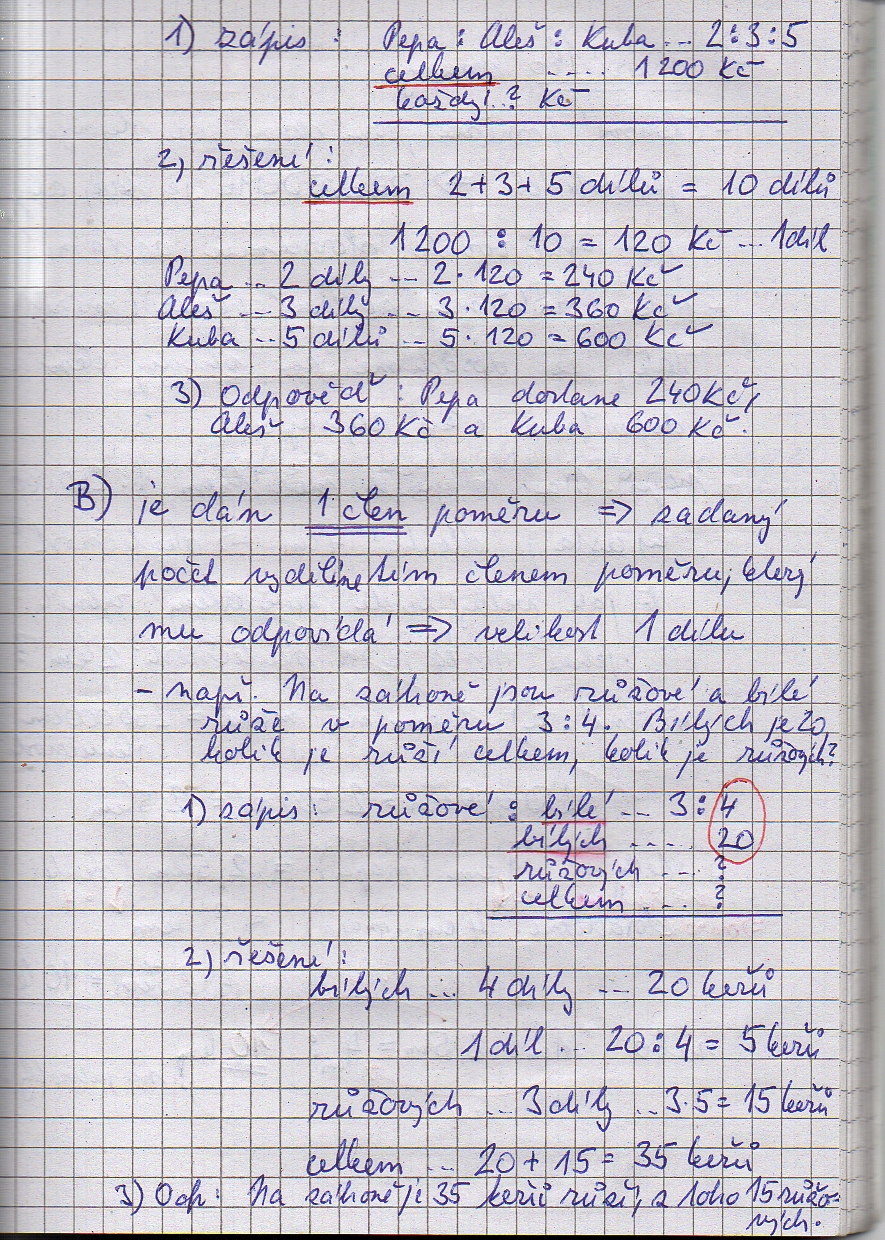 1) zápis : Pepa : Aleš : Kuba ... 2 : 3 : 5
celkem ..... 1 200 Kč
každý ..? Kč
2) řešení :
celkem 2 + 3 + 5 dílů = 10 dílů
1200 : 10 = 120 Kč ... 1 díl
Pepa ... 2 díly ... 2 · 120 = 240 Kč
Aleš ... 3 díly ... 3 · 120 = 360 Kč
Kuba ... 5 dílů ... 5 · 120 = 600 Kč
3) Odpověď : Pepa dostane 240 Kč,
Aleš 360 Kč a Kuba 600 Kč.
B) je dán 1 člen poměru => zadaný
počet vydělíme tím členem poměru, který
mu odpovídá => velikost 1 dílu
- např. Na záhoně jsou růžové a bílé
růže v poměru 3 : 4. Bílých je 20,
kolik je růží celkem, kolik je růžových?
1) zápis : růžové : bílé ... 3 : 4
bílých ..... 20
růžových .... ?
celkem .... ?
2) řešení :
bílých ... 4 díly ... 20 keřů
1 díl ... 20 : 4 = 5 keřů
růžových ... 3 díly ... 3 · 5 = 15 keřů
celkem ... 20 + 15 = 35 keřů
3) Odp : Na záhoně je 35 keřů růží, z toho 15 růžo-
vých.